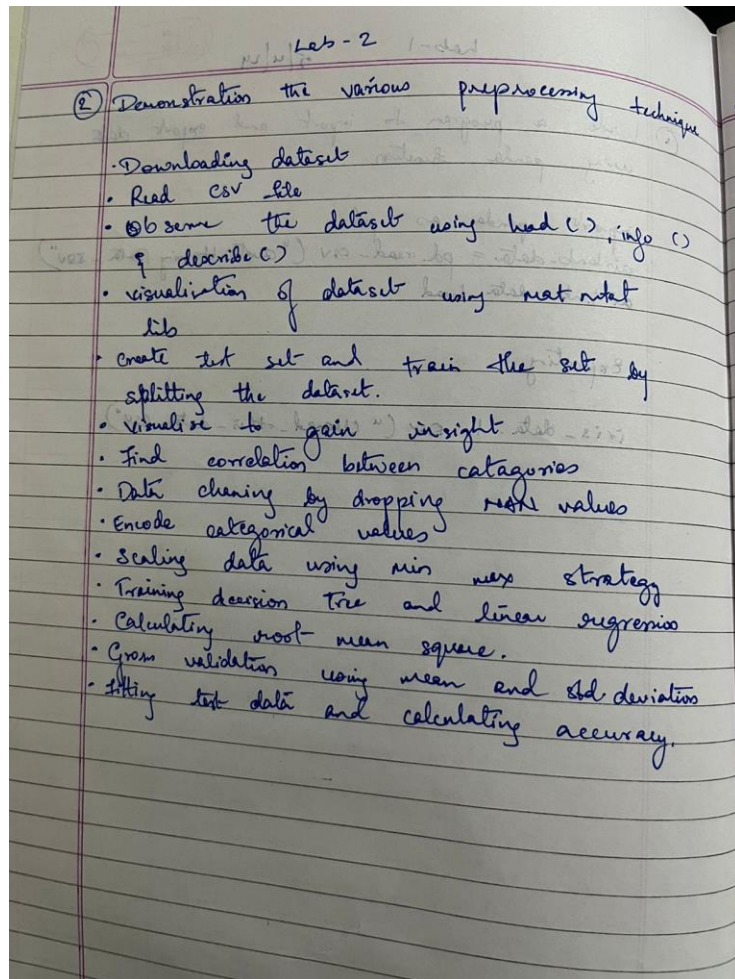 Lab-2
② Demonstration the various preprocessing technique
· Downloading dataset
· Read csv file
· Observe the dataset using head(), info()
& describe()
· visualization of dataset using matplotlib
lib
· create test set and train the set by
splitting the dataset.
· visualise to gain insight
· Find correlation between catagories
· Data cleaning by dropping NAN values
· Encode categorical values
· Scaling data using min max strategy
· Training decision Tree and linear regression
· Calculating root mean square.
· Cross validation using mean and std deviation
· fitting test data and calculating accuracy.